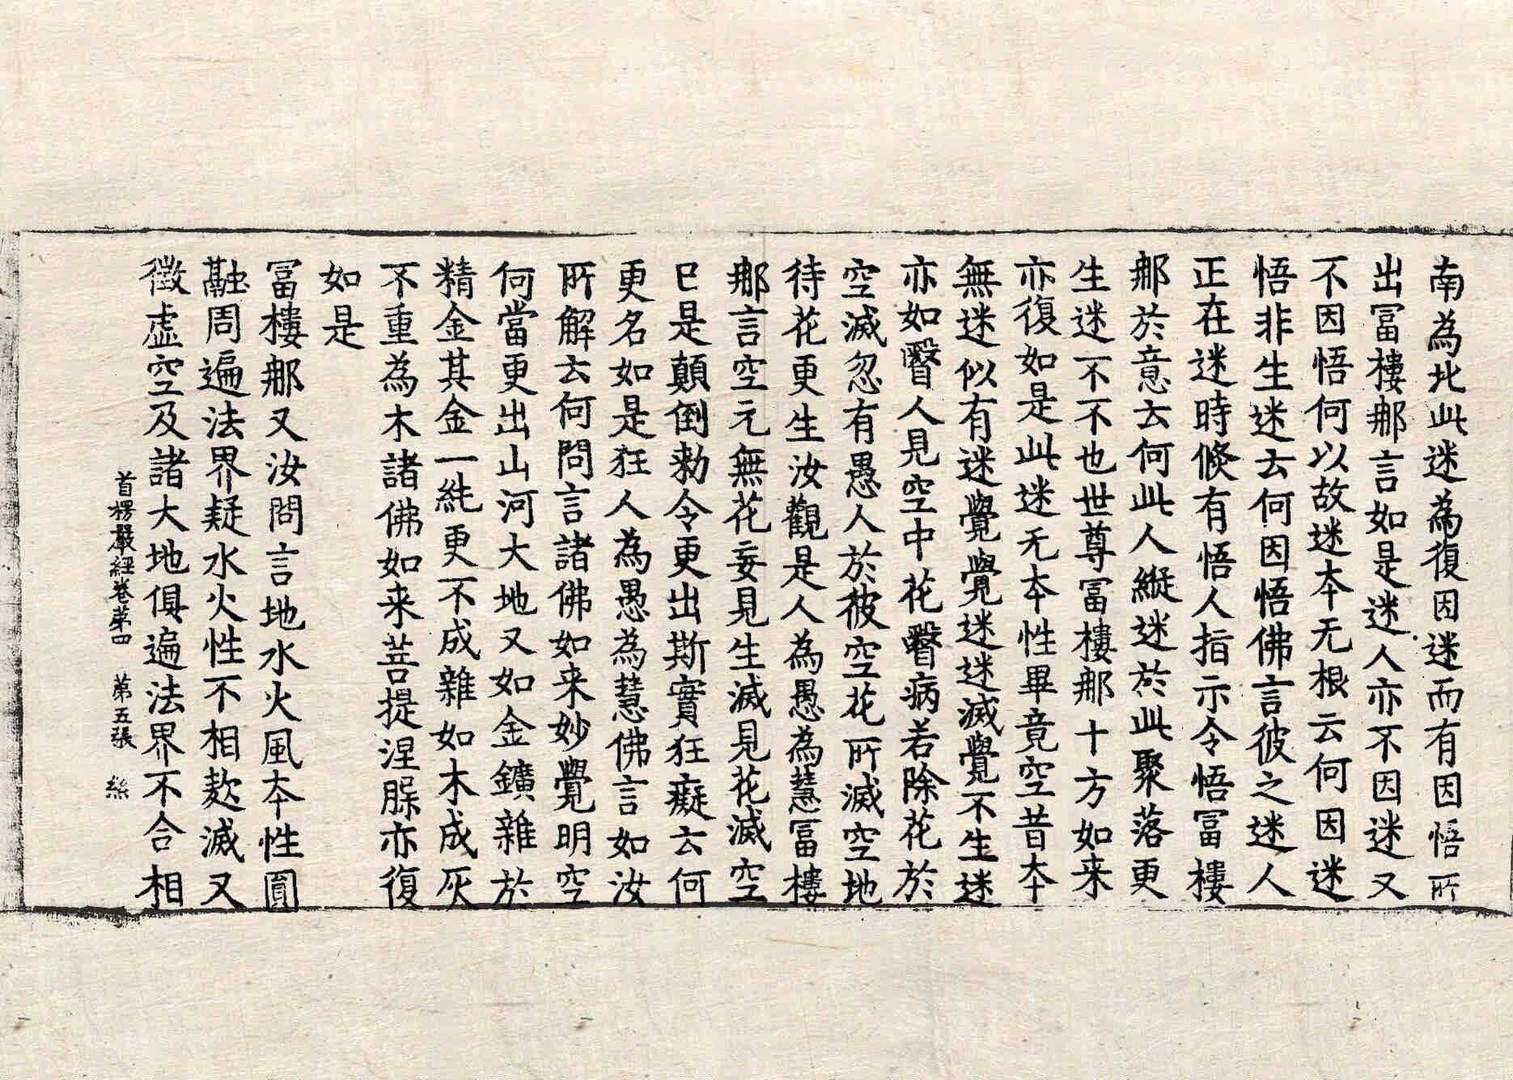 南為北此迷為復因迷而有因悟所
出冨樓那言如是迷人亦不因迷又
不因悟何以故迷本无根云何因迷
悟非生迷云何因悟佛言彼之迷人
正在迷時倐有悟人指示令悟冨樓
那於意云何此人縱迷於此聚落更
生迷不不也世尊冨樓那十方如来
亦復如是此迷无本性畢竟空昔本
無迷似有迷覺覺迷迷滅覺不生迷
亦如瞖人見空中花瞖病若除花於
空滅忽有愚人於彼空花所滅空地
待花更生汝觀是人為愚為慧冨樓
那言空元無花妄見生滅見花滅空
已是顛倒勑令更出斯實狂癡云何
更名如是狂人為愚為慧佛言如汝
所解云何問言諸佛如来妙覺明空
何當更出山河大地又如金鑛雜於
精金其金一純更不成雜如木成灰
不重為木諸佛如来菩提涅脲亦復
如是
冨樓那又汝問言地水火風本性圓
融周遍法界疑水火性不相欺滅又
徵虛空及諸大地俱遍法界不合相
首楞嚴經卷苐四　苐五張　絲